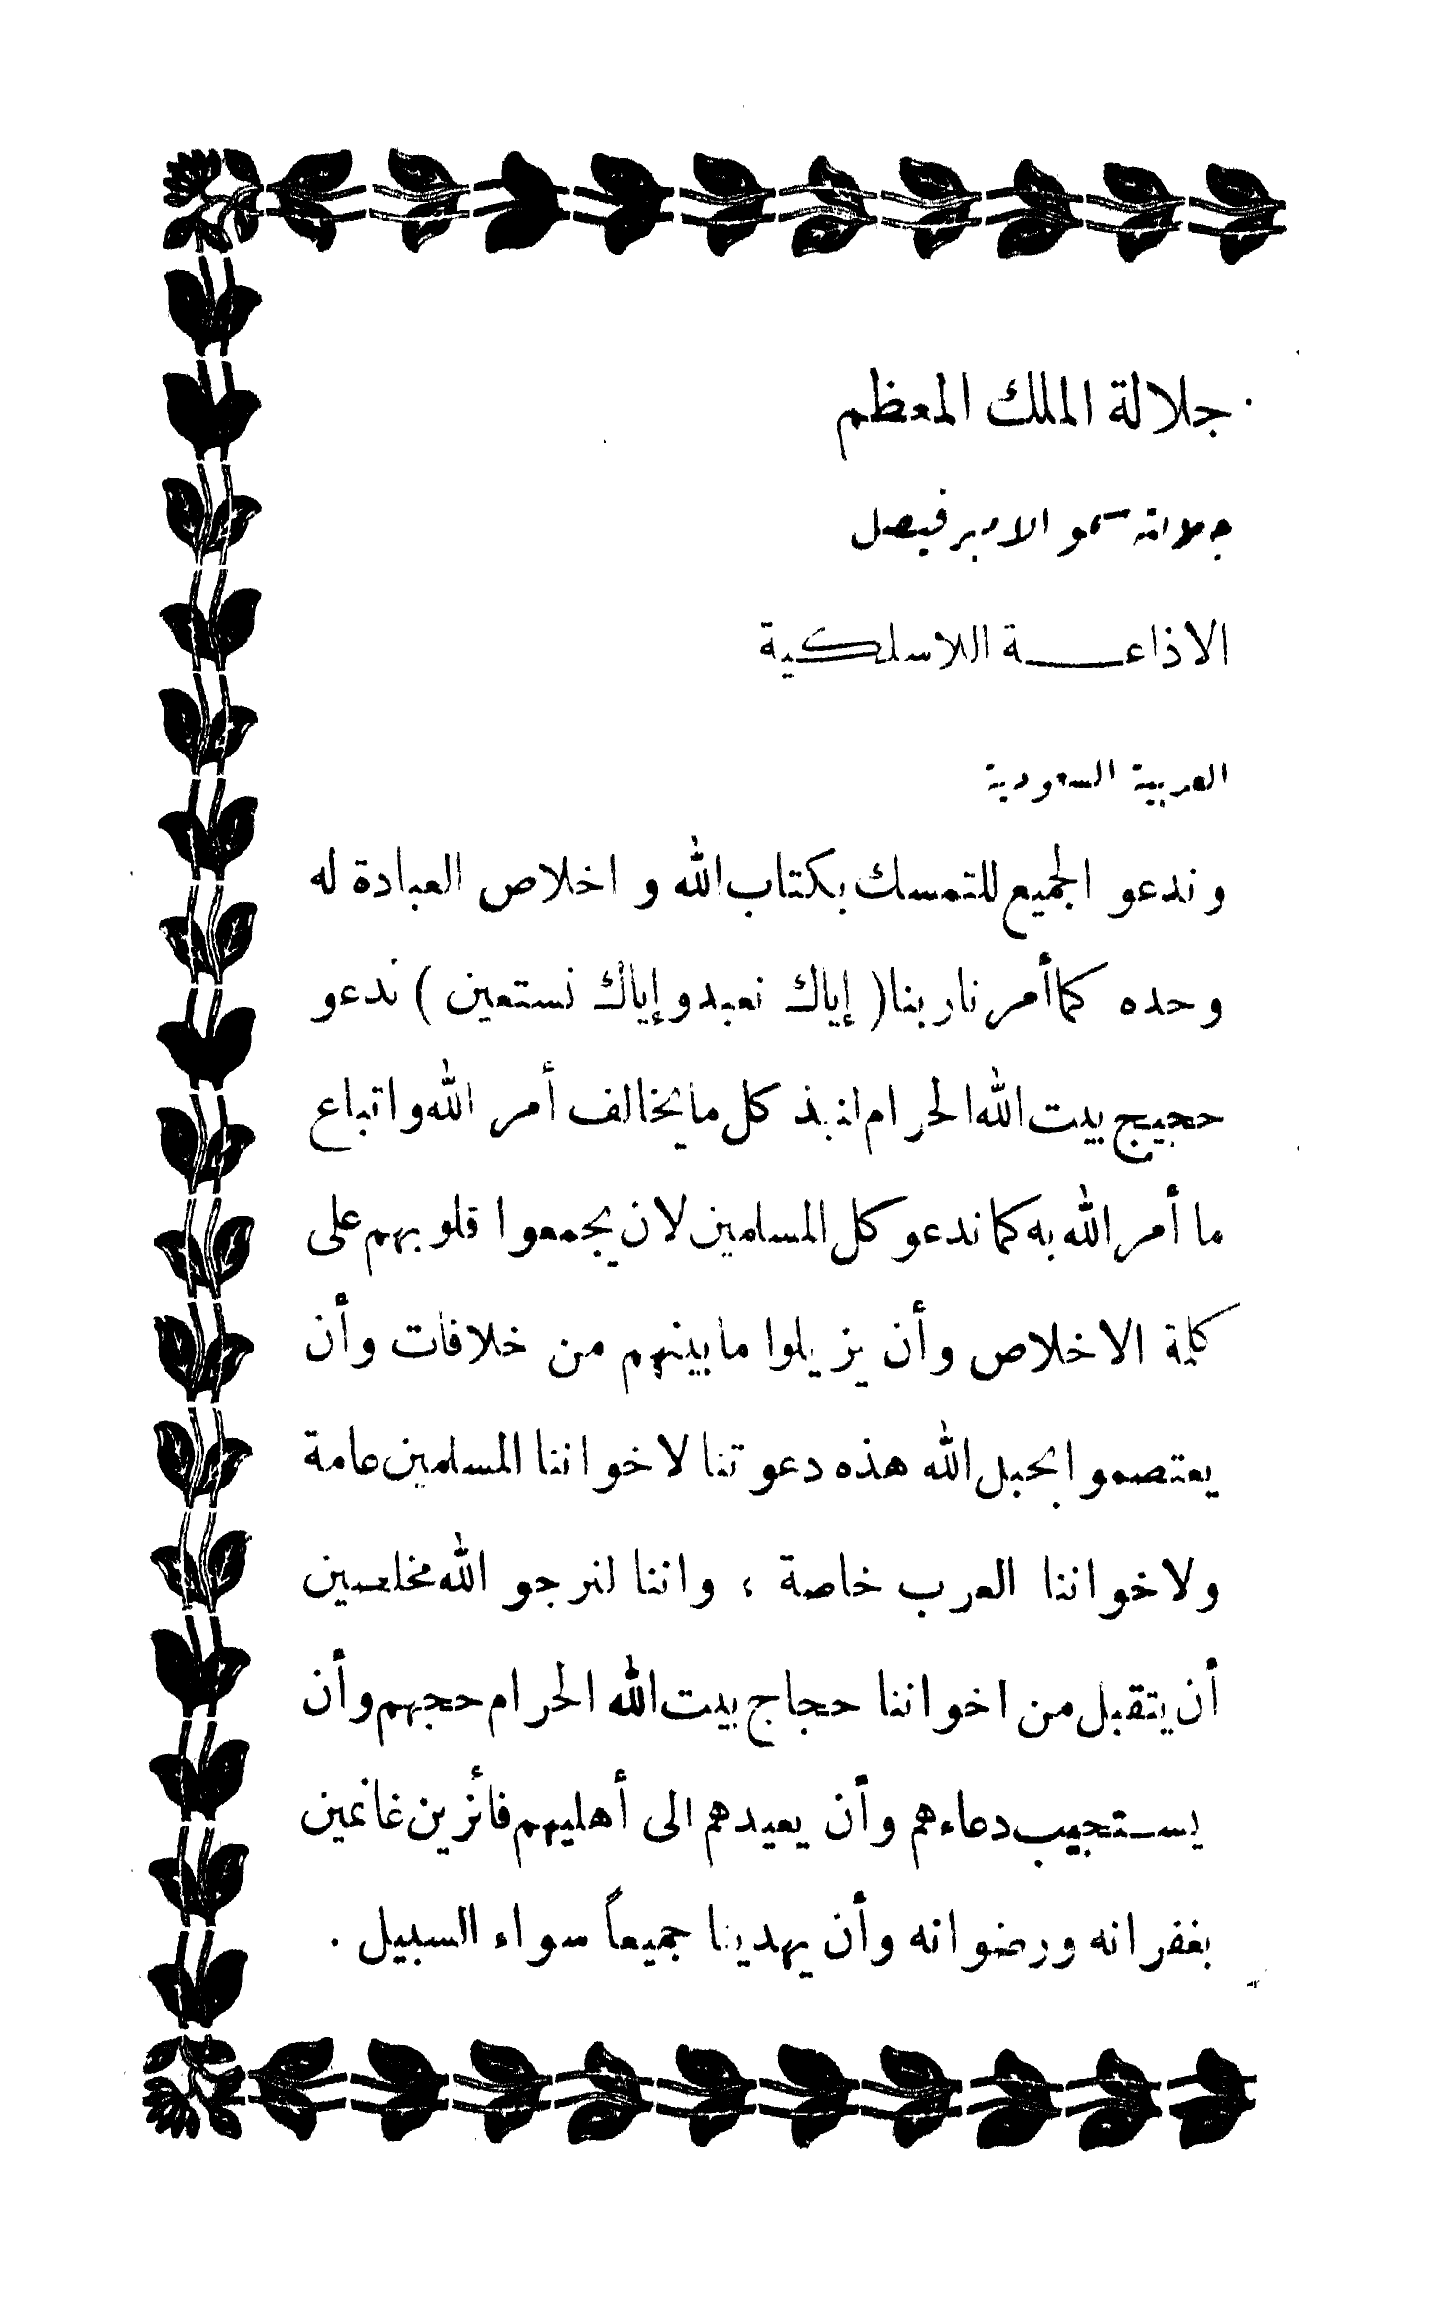 جلالة الملك المعظم
سمو الامير فيصل
الاذاعـــة اللاسلكية
العربية السعودية
وندعو الجميع للتمسك بكتاب الله و اخلاص العبادة له
وحده كما أمرنا ربنا ( إياك نعبد وإياك نستعين ) ندعو
حجيج بيت الله الحرام لنبذ كل ما يخالف أمر الله واتباع
ما أمر الله به كما ندعو كل المسلمين لان يجمعوا قلوبهم على
كلمة الاخلاص وأن يزيلوا ما بينهم من خلافات وأن
يعتصموا بحبل الله هذه دعوتنا لاخواننا المسلمين عامة
ولاخواننا العرب خاصة ، واننا لنرجو الله مخلصين
أن يتقبل من اخواننا حجاج بيت الله الحرام حجهم وأن
يستجيب دعاءهم وأن يعيدهم الى أهليهم فائزين غانمين
بغفرانه ورضوانه وأن يهدينا جميعاً سواء السبيل .